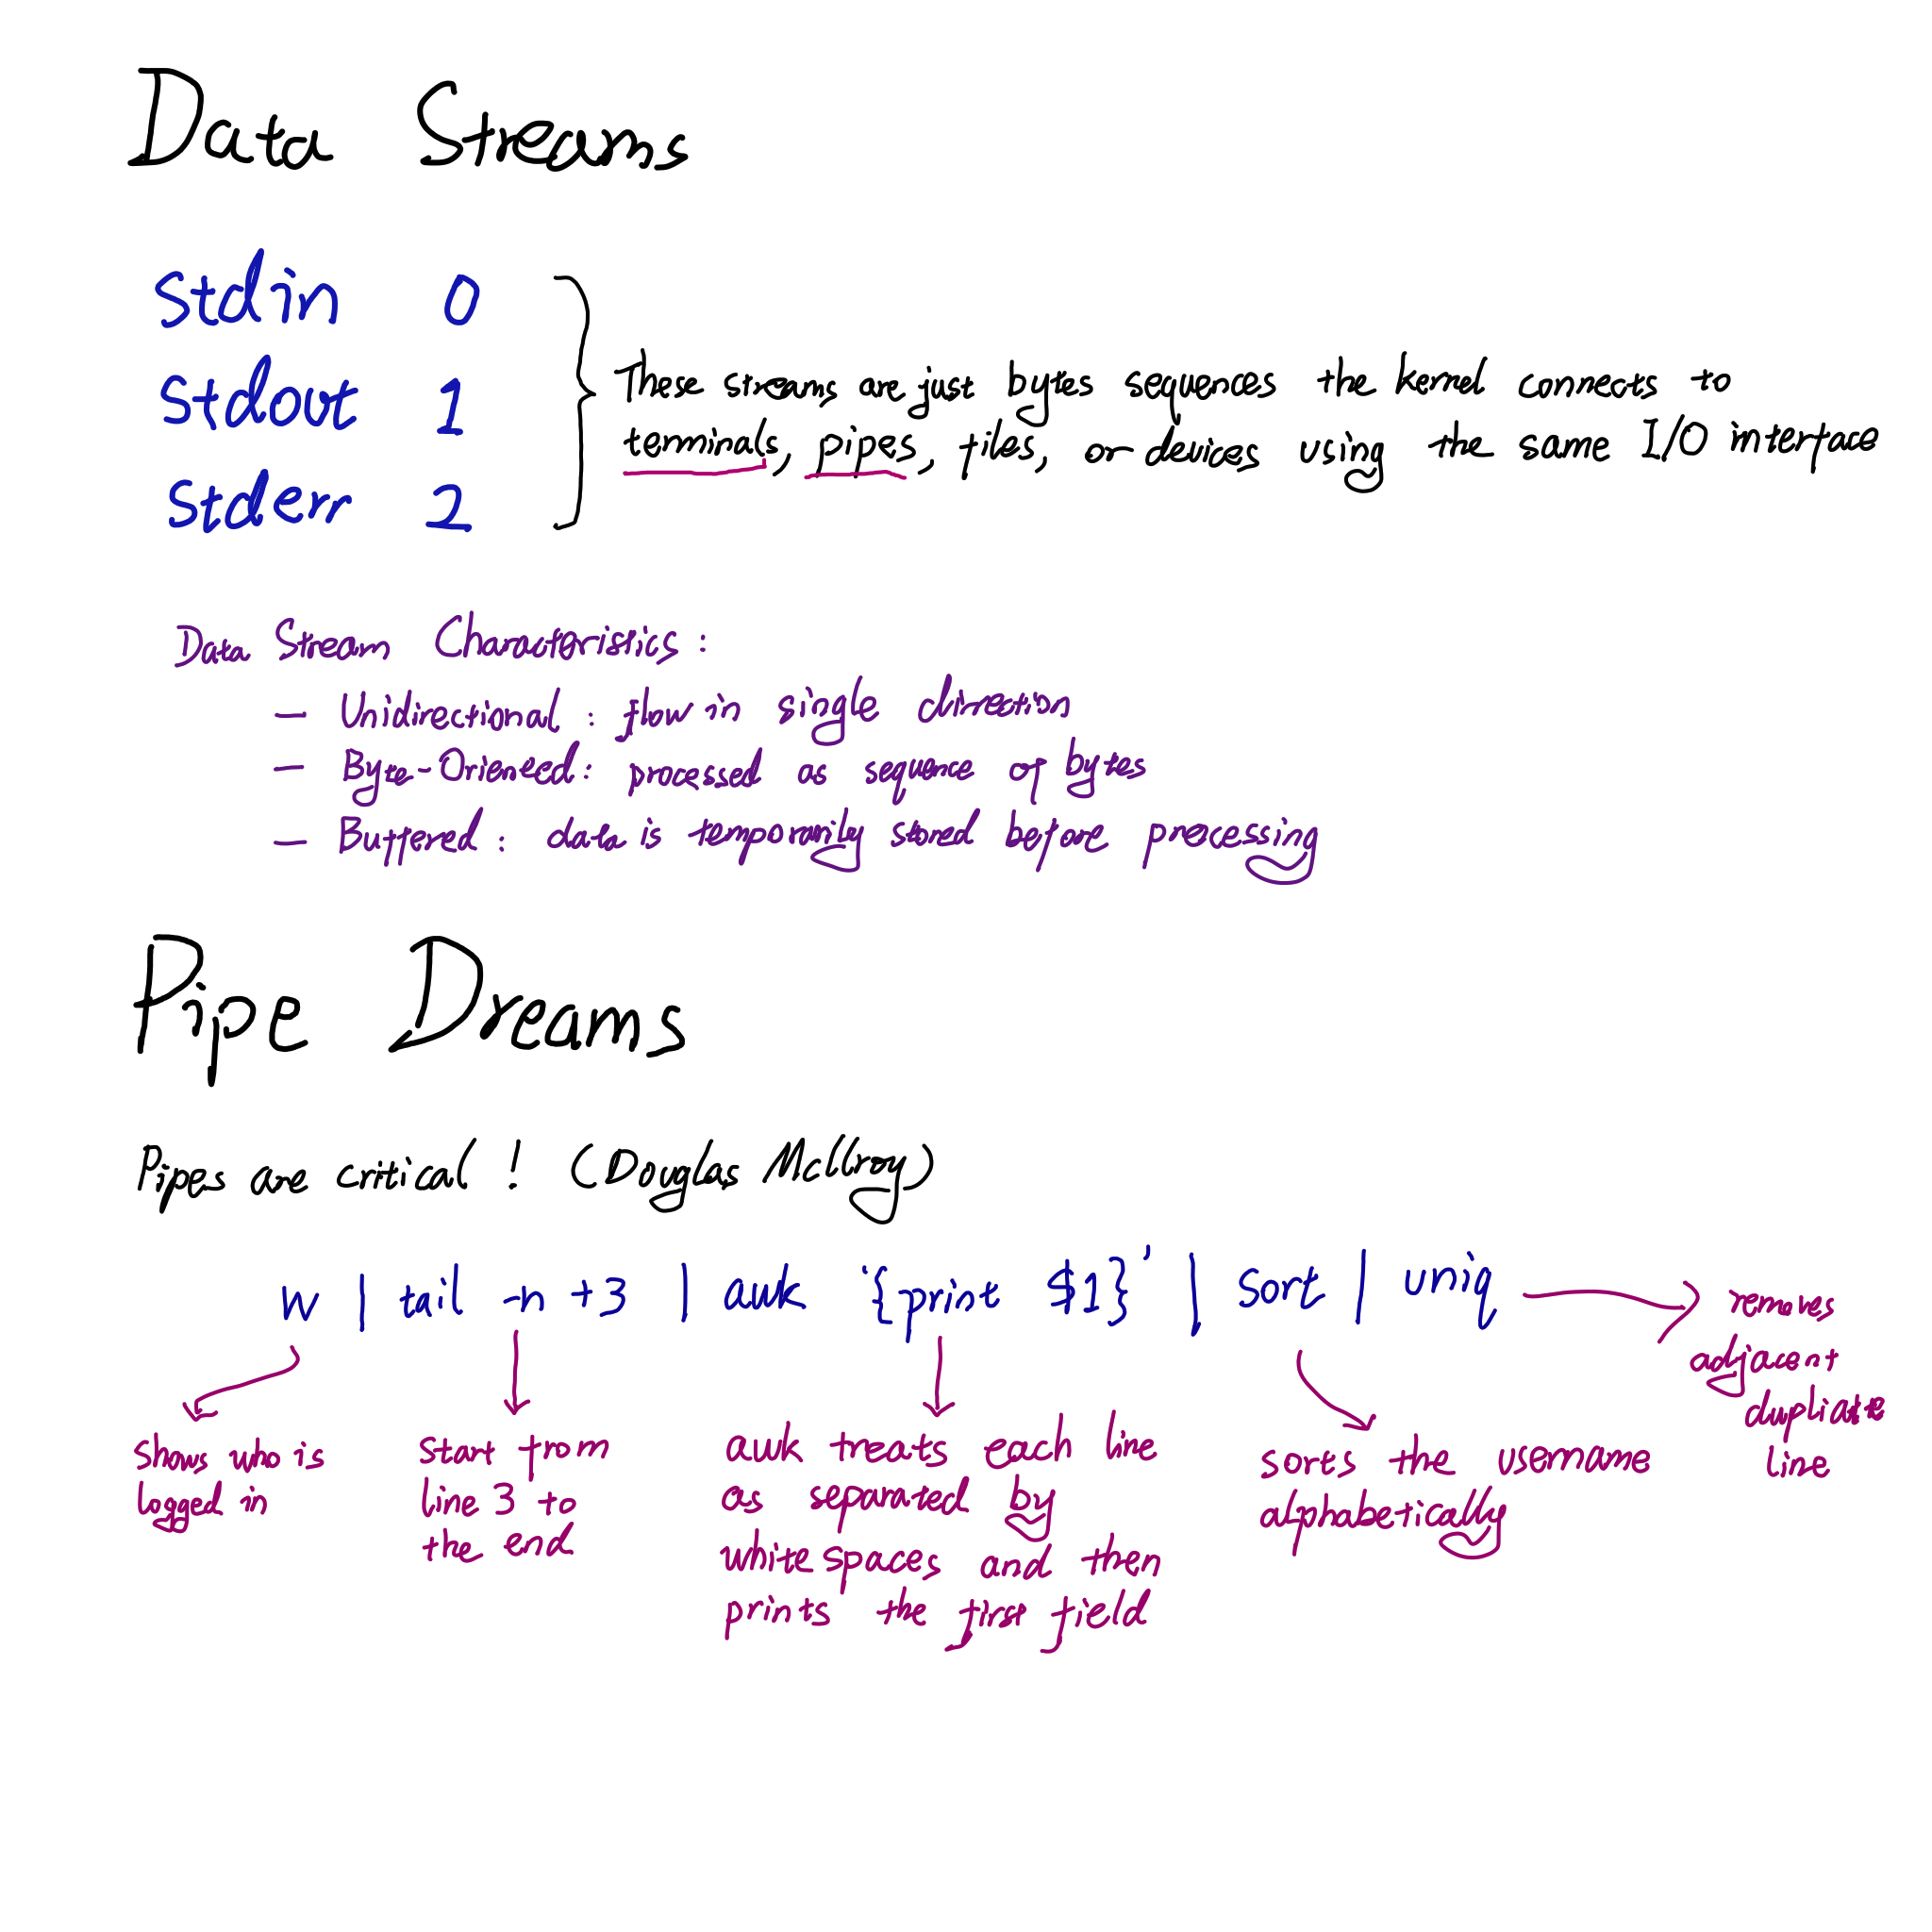 Data Streams
Stdin 0
Stdout 1
Stderr 2
These streams are just bytes sequences the kernel connects to
terminals, pipes, files, or devices using the same I/O interface
Data Stream Characteristics:
- Unidirectional: flow in single direction
- Byte-Oriened: processed as sequence of bytes
- Buffered: data is temporarily stored before processing
Pipe Dreams
Pipes are critical! (Douglas McIlroy)
w | tail -n +3 | awk '{print $1}' | sort | uniq
shows who is
logged in
start from
line 3 to
the end
awk treats each line
as separated by
white spaces and then
prints the first field
sorts the username
alphabetically
removes
adjacent
duplicate
line